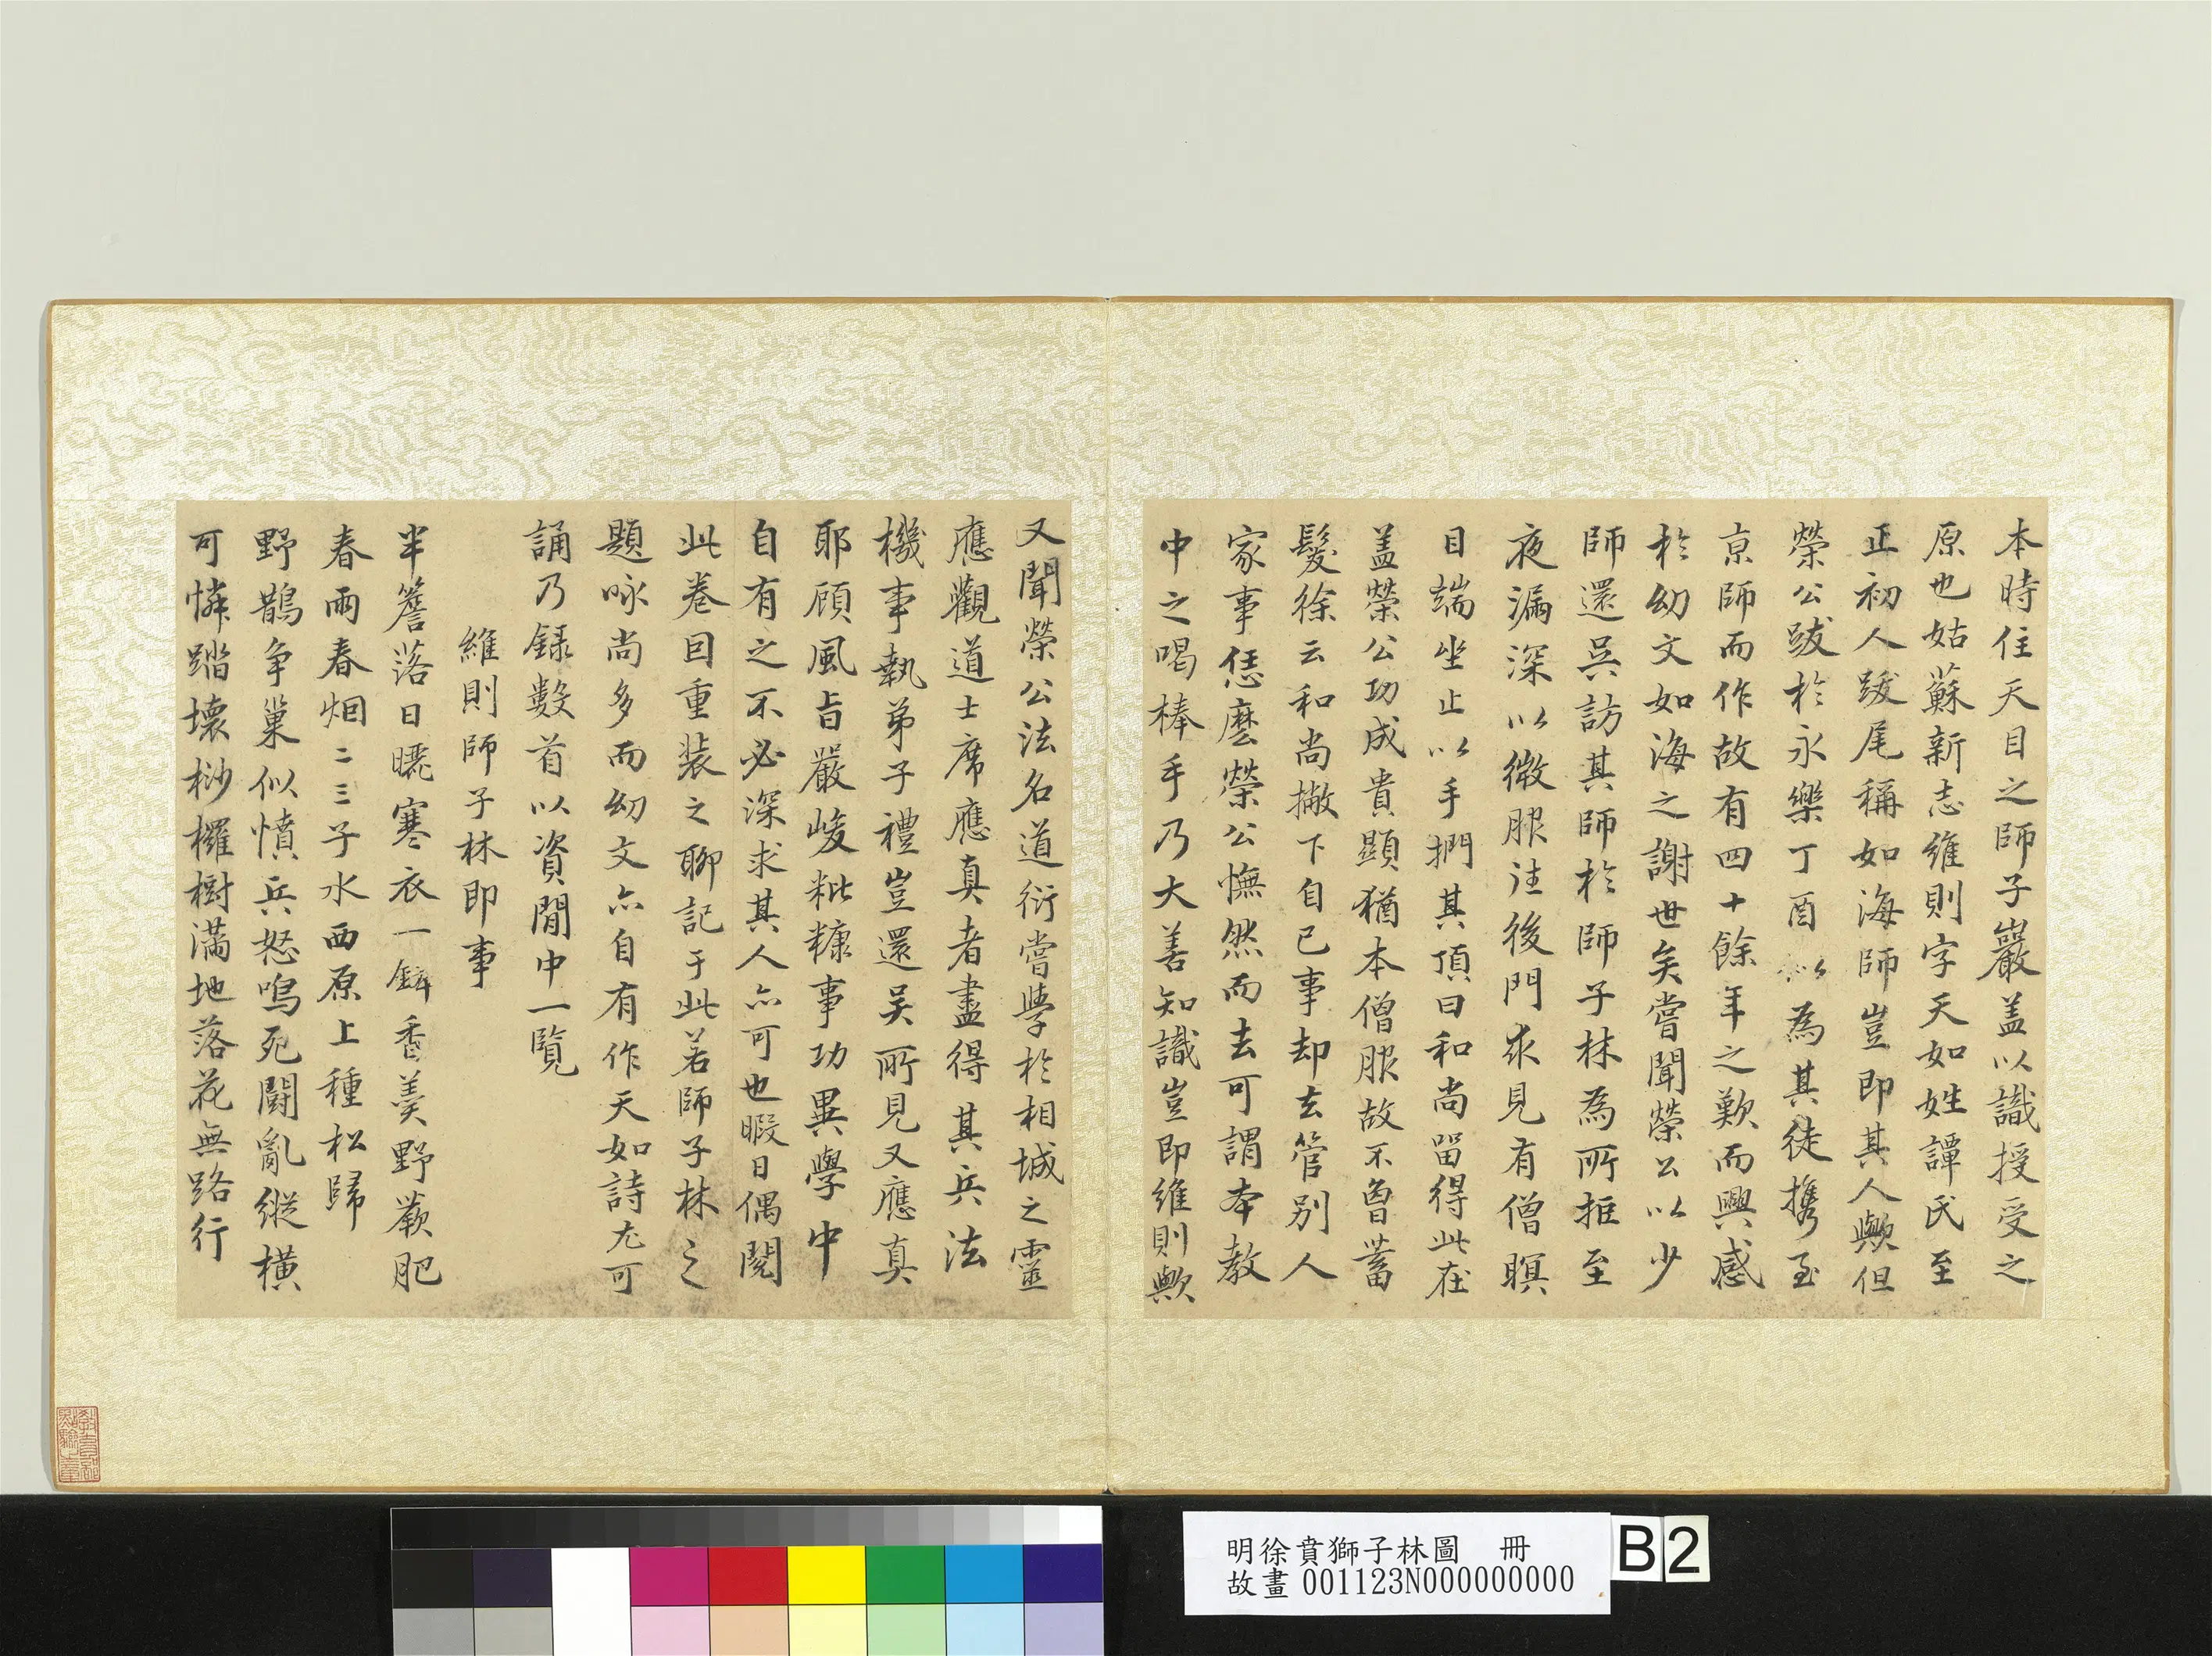 本時住天目之師子巖盖以識授受之
原也姑蘇新志維則字天如姓譚氏至
正初人跋尾稱如海師豈即其人歟但
榮公跋於永樂丁酉以為其徒攜至
京師而作故有四十餘年之歎而興感
於幼文如海之謝世矣嘗聞榮公以少
師還吳訪其師於師子林為所拒至
夜漏深以微服往後門求見有僧瞑
目端坐止以手捫其頂曰和尚留得此在
盖榮公功成貴顯猶本僧服故不曾蓄
髮徐云和尚撇下自己事却去管別人
家事恁麽榮公憮然而去可謂本教
中之喝棒手乃大善知識豈即維則歟
又聞榮公法名道衍嘗學於相城之靈
應觀道士席應真者盡得其兵法
機事執弟子禮豈還吴所見又應真
耶顧風旨嚴峻粃糠事功異學中
自有之不必深求其人亦可也暇日偶閱
此卷因重装之聊記于此若師子林之
題咏尚多而幼文亦自有作天如詩尤可
誦乃録數首以資閒中一覧
維則師子林即事
半簷落日曬寒衣一鉢香羮野蕨肥
春雨春烟二三子水西原上種松歸
野鵲争巢似憤兵怒鳴死鬭亂縱橫
可憐踏壊桫欏樹滿地落花無路行
明徐賁獅子林圖　冊
故畫 001123N000000000
B 2